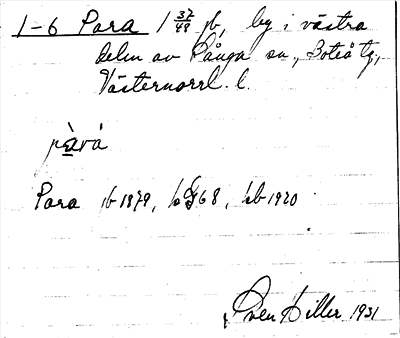 1-6 Para 1 37/48 jb, by i västra
delen av Långa sn, Boteå tg,
Västernorrl. l.
pàvà
Para jb 1879, hb 1920
Sven Hiller 1931